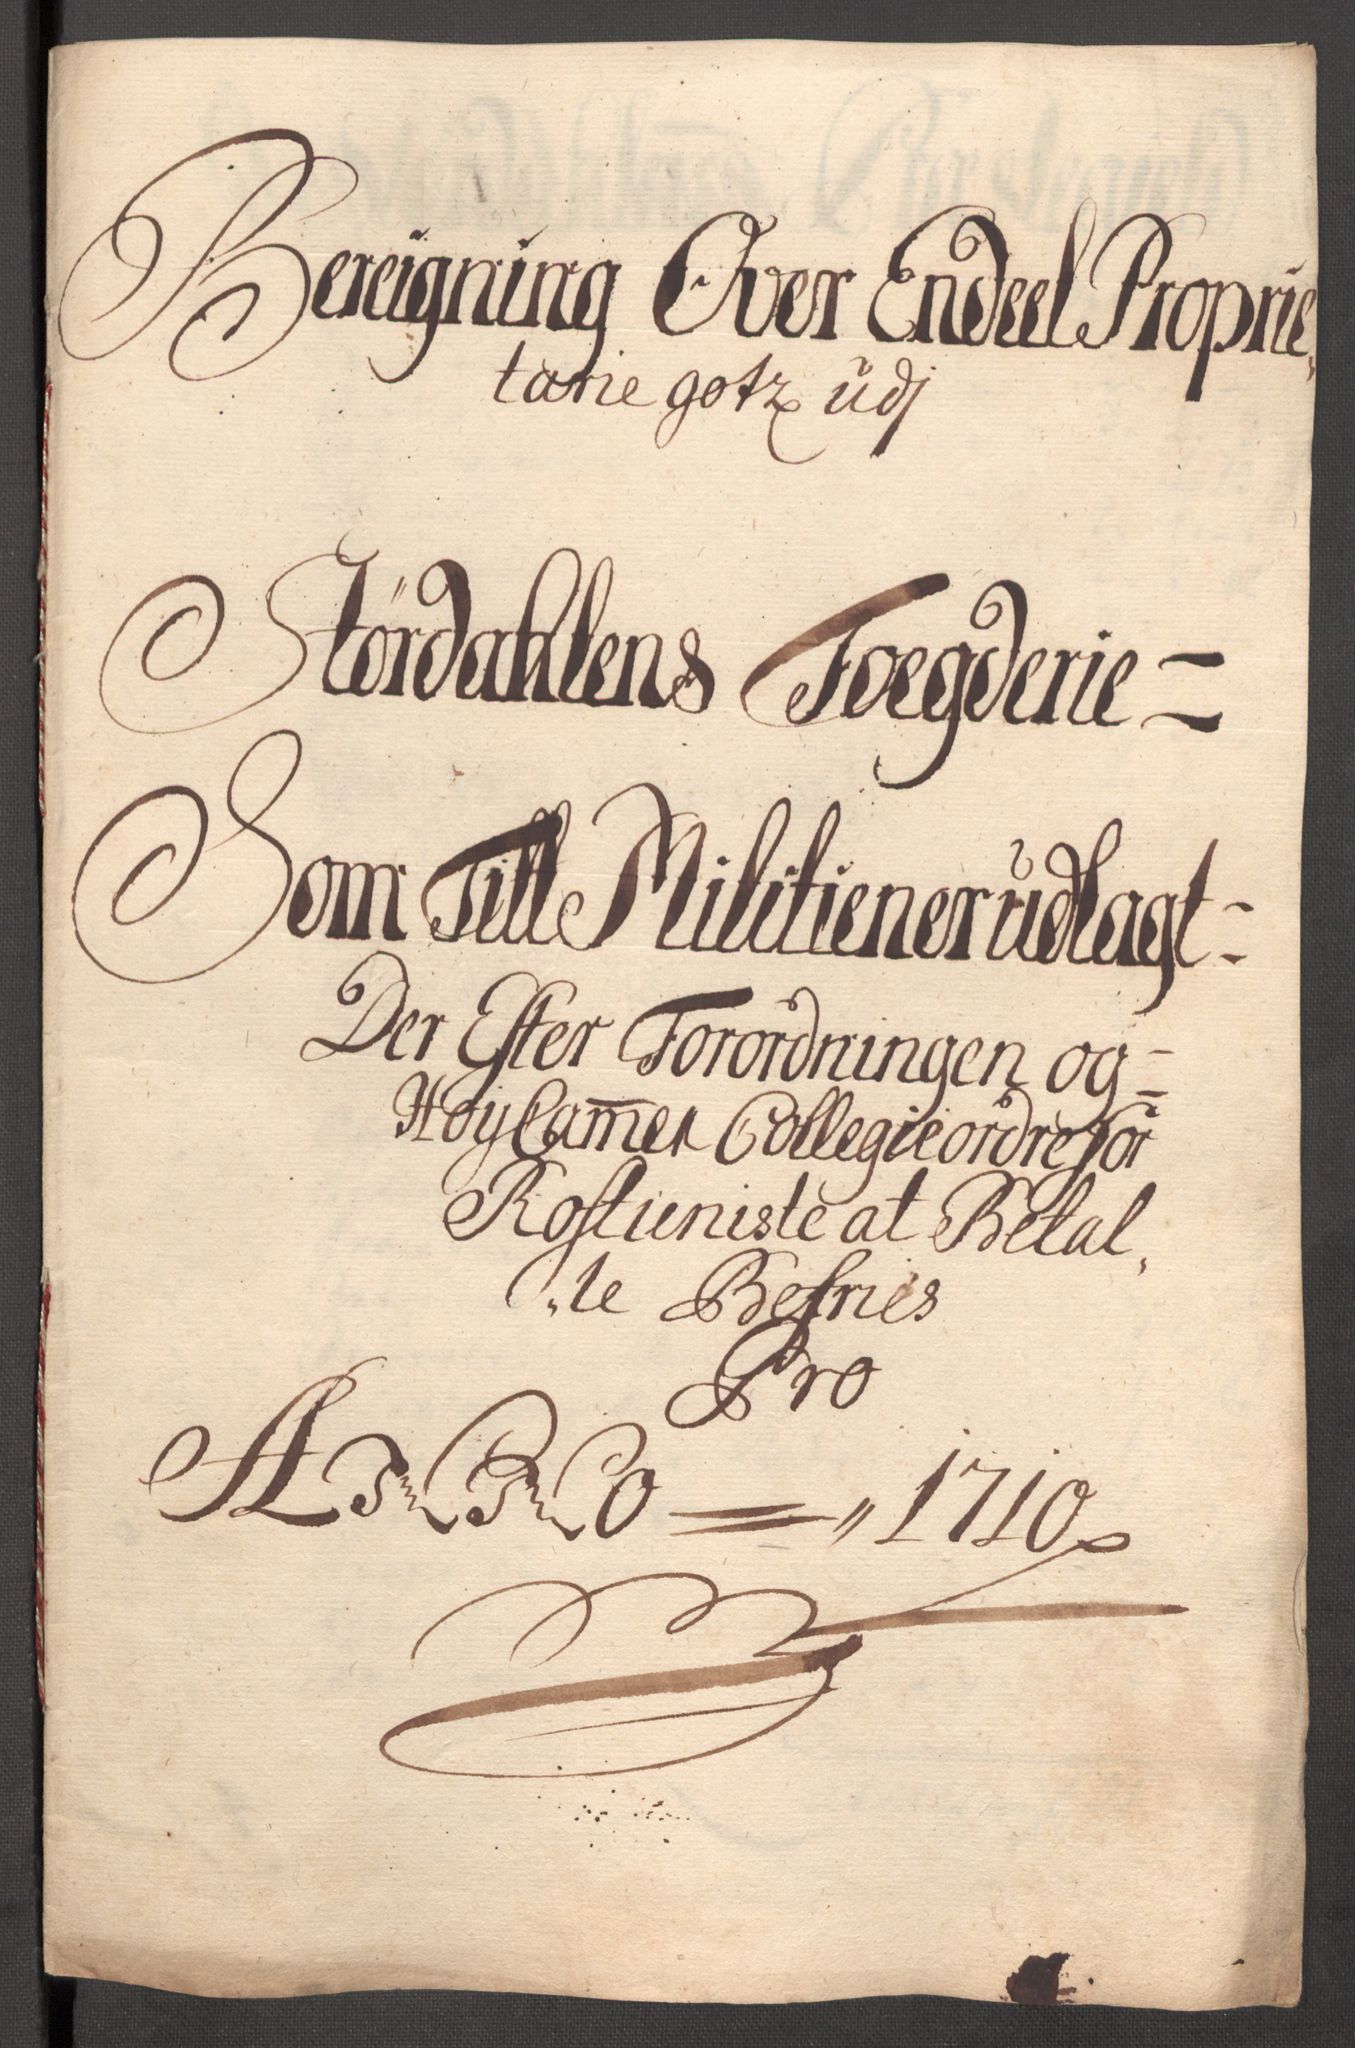 Bereigning Over Endeel Proprie„
tarie gotz udj
Stördahlens Foegderie =
Som Till Militien er udlagt =
Der Efter Forordningen og =
Høy Cam̅er Collegie ordre for
Rostieniste at Betal„
„te Befries
Pro
ANNO = „ 1710